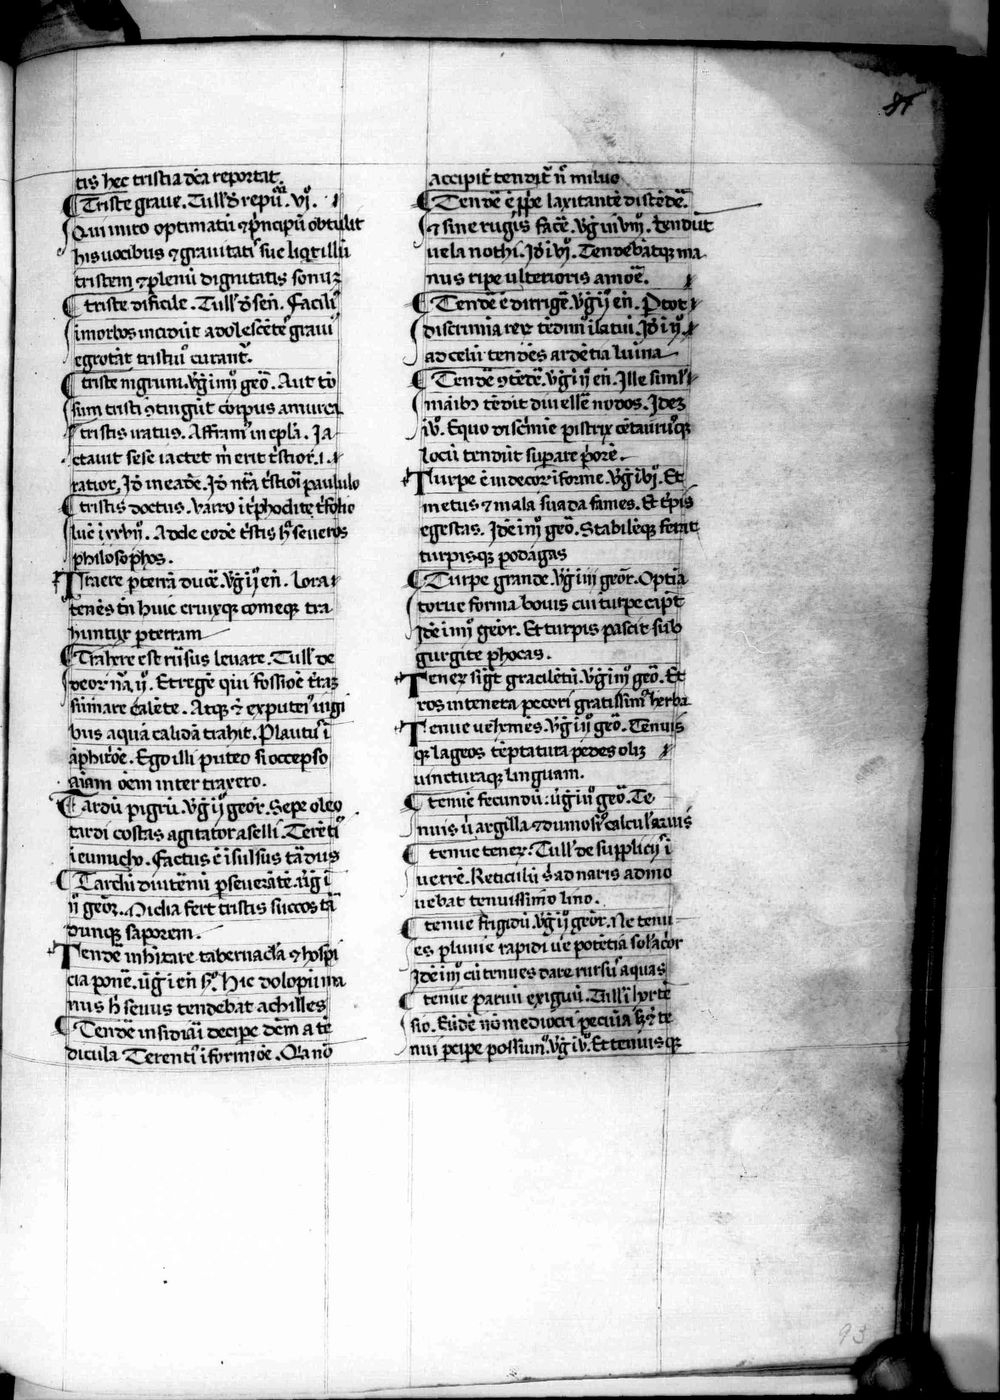 87
tis hec tristia dc̄a reportat.
¶ Triste graue. Tull' d' re pu. vi.
Qui mito optimatū ⁊ p̄ncipū obtulit
his uocibus ⁊ grauitati sue liqt illū
tristem ⁊ plenū dignitatis sonuꝫ
¶ triste dificile. Tull' d' sen̄. Facili
ī morbos incidūt adolescētes graui
egrotāt tristiꝰ curant᷑.
¶ triste nigrum. v̄g i iiij geō. Aut tō
sum tristi ꝯtingūt corpus amurca
tristis iratus. Affraniꝰ in epl̄a. Ia
ctauit sese iactet m̄ erit t̄stior. i.
ratior. Id' in eadē. Id' nr̄a t̄stiori paululo
¶ tristis doctus. Varro
luē i xxvij. Adele eodē t̄stis h' seueros
philosophos.
Traere p terrā ducē. v̄g ij en̄. lora
tenēs tn̄ huic ceruixqꝫ comeqꝫ tra
huntur p terram
¶ Trahere est rūsus leuare. Tull' de
deor na. ij. Et regē qui fossiōe t̄raꝫ
calēte. Atqꝫ ⁊ ex puteis iugi
bus aquā calidā trahit. Plautus ī
āphitōe. Ego illi puteo si occepso
aīam oēm inter traxero.
Tardū pigrū. v̄g ij geor. Sepe oleo
tardi costas agitator aselli. Terētiꝰ
ī eunucho. Factus ē īsulsus tardus
¶ Tardū p̄seuerātē. v̄g i
ij geoꝝ. Media fert tristis succos tar
dumqꝫ saporem.
Tendē inhitare tabernacl'a ⁊ hospi
cia ponē. v̄g i en̄ ijº. Hic dolopū ma
nus h' seuus tendebat achilles
¶ Tendē insidiari decipe dēm a tē
dicula Terentiꝰ ī formiōe. Qa nō
accipit᷑ tendit᷑ n̄ miluo
¶ Tendē ē laxitantē distēdē.
⁊ sine rugis facē. v̄g in viiij. tendūt
uela nothi. Id' i vj. Tendebātqꝫ ma
nus ripe ulterioris amoē.
¶ Tendē ē dirrigē. v̄g ij en̄. P tot
discrimia reꝝ tēdimꝰ ī latiū. Id' i ij.
ad celū tendēs ardētia lumina
¶ Tendē ꝯtēdē. v̄g i ij en̄. Ille simul
māibꝫ tēdit diuellē nodos. Ideꝫ
i v. Equo discīmie pistrix cētaurusqꝫ
locū tendūt supare p̄ore.
Turpe ē indecoꝝ īforme. v̄g i vj. Et
metus ⁊ mala suada fames. Et t̄pis
egestas. Idē i iiij geō. Stabilēqꝫ ferūt
turpisqꝫ podagas
¶ Turpe grande. v̄g i iij geōr. Optīa
torue forma bouis cui turpe capūt
Idē i iiij geōr. Et turpis pascit sub
gurgite phocas.
Teneꝝ sig͛t gracilētū. v̄g i iij geō. Et
ros in tenera pecori gratissimꝰ herba
Tenue uehemēs. v̄g i ij geō. Tenuis
qꝫ lageos tēptatura pedes olim
uincturaqꝫ linguam.
¶ tenue fecundū. v̄g i ij geō. Te
nuis ū argilla ⁊ dumosis calculꝰ aruis
¶ tenue teneꝝ. Tull' de suppliciis ī
uerrē. Reticulū s' ad naris admo
uebat tenuissimo lino.
¶ tenue frigidū. v̄g ij geor. Ne tenu
es pluuie rapidi ue potētia sol' acōr
Idē i iij cū tenues dare rursus aquas
¶ tenue paruū exiguū. Tull' ī horte
sio. Eūdē nō mediocri pecunia ⁊ te
nui pcipe possumꝰ. v̄g i iv. Et tenuisqꝫ
93